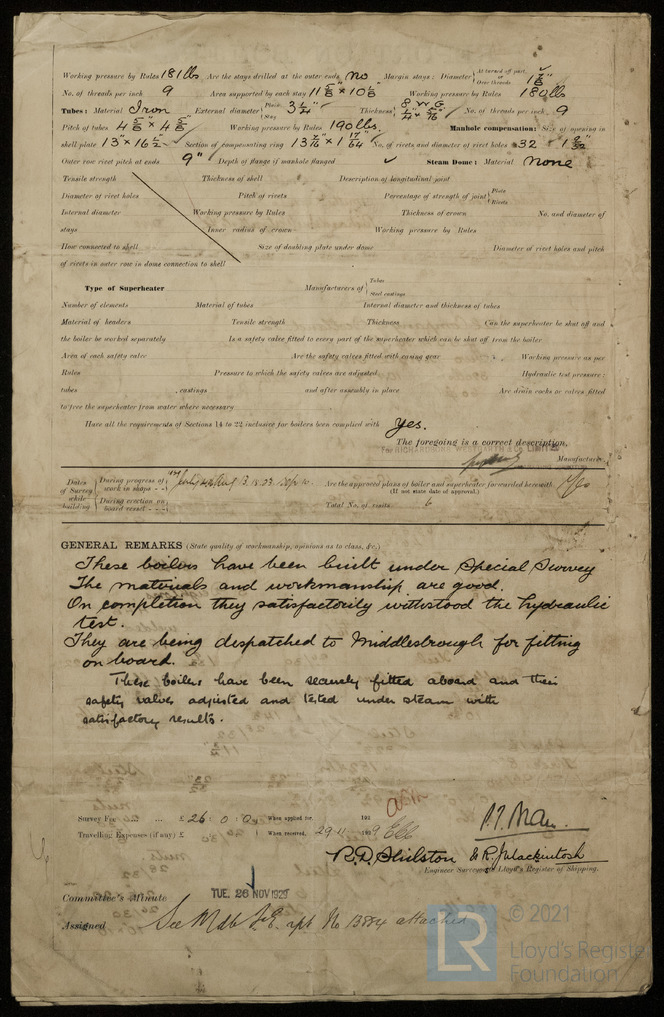 Working pressure by Rules 181 lbs Are the stays drilled at the outer ends no Margin stays: Diameter { At turned off part, or Over threads 1 7/8"
No. of threads per inch 9 Area supported by each stay Working pressure by Rules 180 lbs
Tubes: Material Iron External diameter { Plain Stay 3 1/4" Thickness { 8 W G 1/4" & 5/16" No. of threads per inch 9
Pitch of tubes 4 5/8" x 4 5/8" Working pressure by Rules 190 lbs. Manhole compensation: Size of opening in
shell plate 13" x 16 1/2" Section of compensating ring No. of rivets and diameter of rivet holes 32
Outer row rivet pitch at ends 9" Depth of flange if manhole flanged Steam Dome: Material none
Tensile strength Thickness of shell Description of longitudinal joint
Diameter of rivet holes Pitch of rivets Percentage of strength of joint { Plate Rivets
Internal diameter Working pressure by Rules Thickness of crown No. and diameter of
stays Inner radius of crown Working pressure by Rules
How connected to shell Size of doubling plate under dome Diameter of rivet holes and pitch
of rivets in outer row in dome connection to shell
Type of Superheater Manufacturers of { Tubes Steel castings
Number of elements Material of tubes Internal diameter and thickness of tubes
Material of headers Tensile strength Thickness Can the superheater be shut off and
the boiler be worked separately Is a safety valve fitted to every part of the superheater which can be shut off from the boiler
Area of each safety valve Are the safety valves fitted with easing gear Working pressure as per
Rules Pressure to which the safety valves are adjusted Hydraulic test pressure:
tubes , castings and after assembly in place Are drain cocks or valves fitted
to free the superheater from water where necessary
Have all the requirements of Sections 14 to 22 inclusive for boilers been complied with yes.
The foregoing is a correct description,
For RICHARDSONS WESTGARTH & Co LIMITED
Manufacturer.
Dates of Survey while building { During progress of work in shops - - Are the approved plans of boiler and superheater forwarded herewith Yes
(If not state date of approval.)
During erection on board vessel - - - Total No. of visits 6
GENERAL REMARKS (State quality of workmanship, opinions as to class, &c.)
These boilers have been built under Special Survey
The materials and workmanship are good.
On completion they satisfactorily withstood the hydraulic
test.
They are being despatched to Middlesbrough for fitting
on board.
These boilers have been securely fitted aboard and their
safety valves adjusted and tested under steam with
satisfactory results.
Survey Fee ... £ 26 : 0 : 0 When applied for, 192
Travelling Expenses (if any) £ : : When received, 29.11 1929
R.D. Shilston & R. J. Mackintosh
Engineer Surveyor to Lloyd's Register of Shipping.
Committee's Minute TUE. 26 NOV 1929
Assigned See Mdb F.E. rpt No 13884 attached
© 2021
Lloyd's Register
Foundation
LR